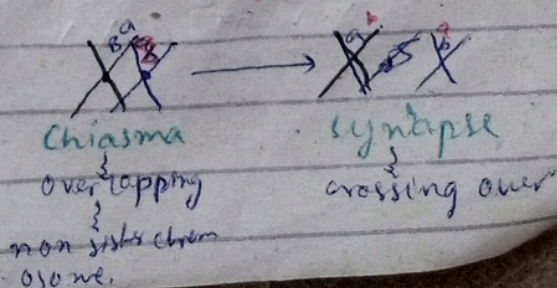 Chiasma
overlapping
non sister chrom
osome.
synapse
crossing over